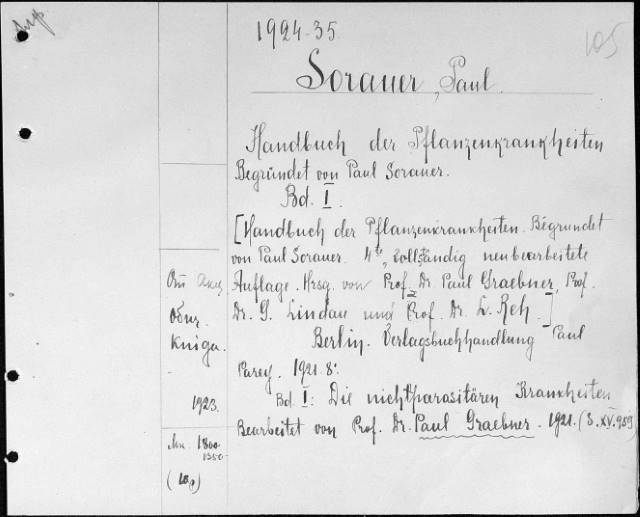 1924-35
105
Sorauer, Paul.
Handbuch der Pflanzenkrankheiten
Begründet von Paul Sorauer.
Bd. I.
[Handbuch der Pflanzenkrankheiten. Begründet
von Paul Sorauer. 4te, vollständig neubearbeitete
Auflage. Hrsg. von Prof. Dr. Paul Graebner, Prof.
Dr. G. Lindau und Prof. Dr. L. Reh.]
Berlin. Verlagsbuchhandlung Paul
Parey. 1921. 8°.
Bd. I: Die nichtparasitären Krankheiten
Bearbeitet von Prof. Dr. Paul Graebner. 1921. (S. XV. 959)
Книга.
1923.
1800
1350